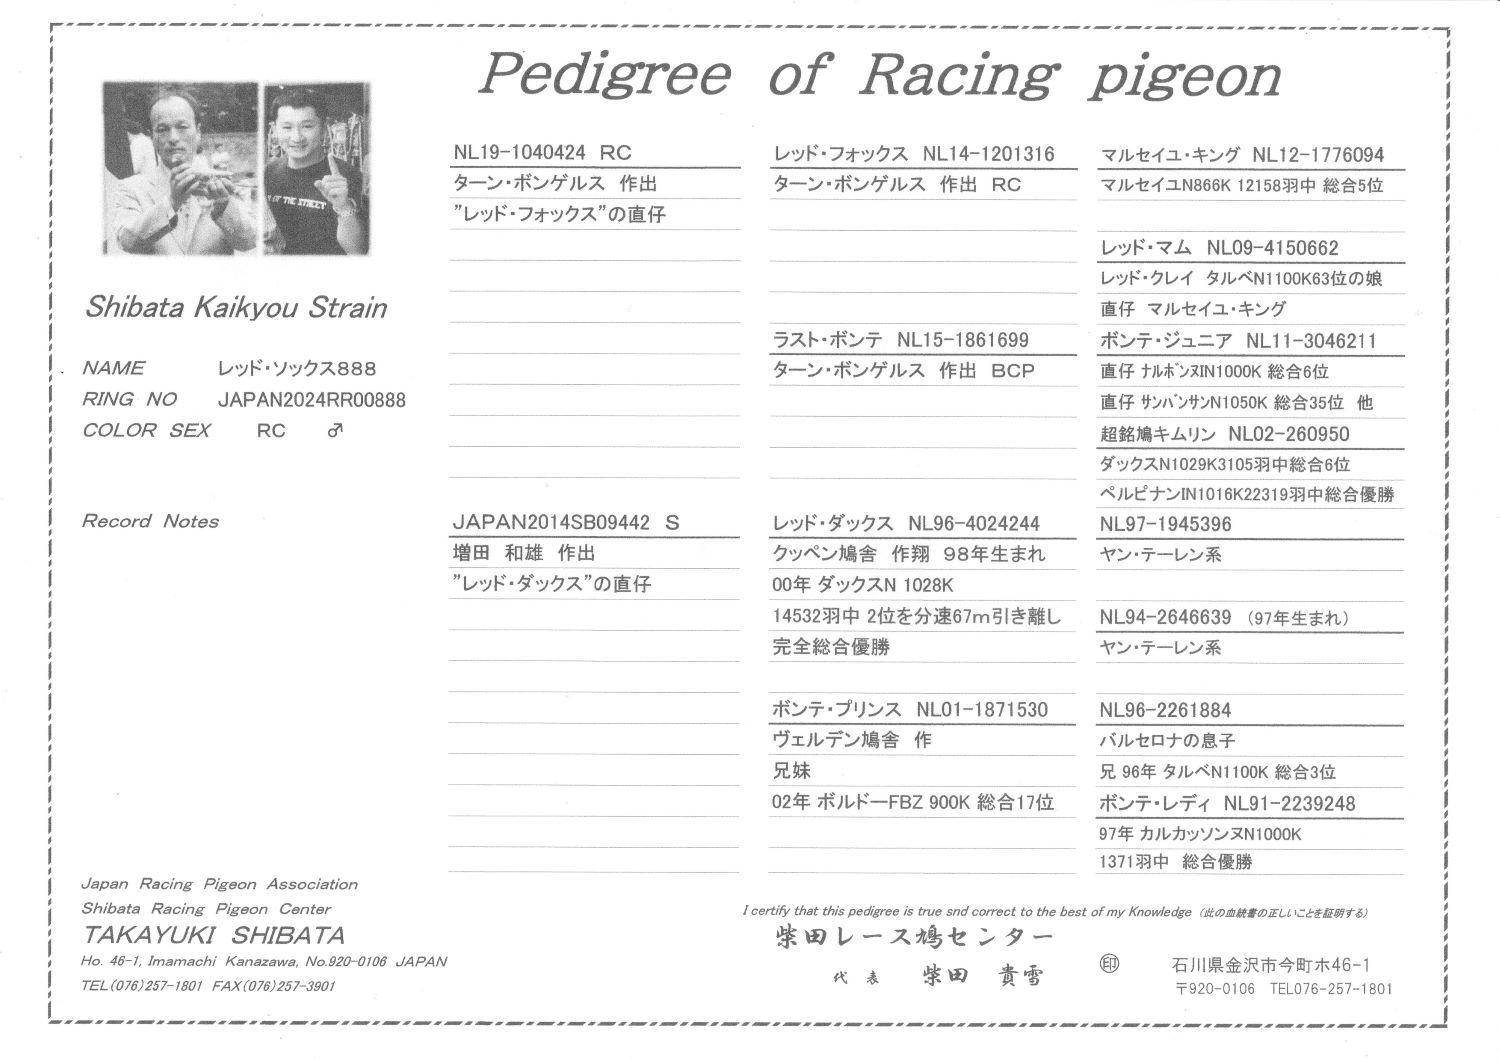 Pedigree of Racing pigeon
OF THE STREET
Shibata Kaikyou Strain
NAME レッド・ソックス888
RING NO JAPAN2024RR00888
COLOR SEX RC ♂
Record Notes
NL19-1040424 RC
ターン・ボンゲルス 作出
”レッド・フォックス”の直仔
JAPAN2014SB09442 S
増田 和雄 作出
”レッド・ダックス”の直仔
レッド・フォックス NL14-1201316
ターン・ボンゲルス 作出 RC
ラスト・ボンテ NL15-1861699
ターン・ボンゲルス 作出 BCP
レッド・ダックス NL96-4024244
クッペン鳩舎 作翔 98年生まれ
00年 ダックスN 1028K
14532羽中 2位を分速67m引き離し
完全総合優勝
ボンテ・プリンス NL01-1871530
ヴェルデン鳩舎 作
兄妹
02年 ボルドーFBZ 900K 総合17位
マルセイユ・キング NL12-1776094
マルセイユN866K 12158羽中 総合5位
レッド・マム NL09-4150662
レッド・クレイ タルベN1100K63位の娘
直仔 マルセイユ・キング
ボンテ・ジュニア NL11-3046211
直仔 ナルボンヌIN1000K 総合6位
直仔 サンバンサンN1050K 総合35位 他
超銘鳩キムリン NL02-260950
ダックスN1029K3105羽中総合6位
ペルピナンIN1016K22319羽中総合優勝
NL97-1945396
ヤン・テーレン系
NL94-2646639 (97年生まれ)
ヤン・テーレン系
NL96-2261884
バルセロナの息子
兄 96年 タルベN1100K 総合3位
ボンテ・レディ NL91-2239248
97年 カルカッソンヌN1000K
1371羽中 総合優勝
Japan Racing Pigeon Association
Shibata Racing Pigeon Center
TAKAYUKI SHIBATA
Ho. 46-1, Imamachi Kanazawa, No.920-0106 JAPAN
TEL(076)257-1801 FAX(076)257-3901
I certify that this pedigree is true snd correct to the best of my Knowledge (此の血統書の正しいことを証明する)
柴田レース鳩センター
代表 柴田 貴雪
㊞
石川県金沢市今町ホ46-1
〒920-0106 TEL076-257-1801